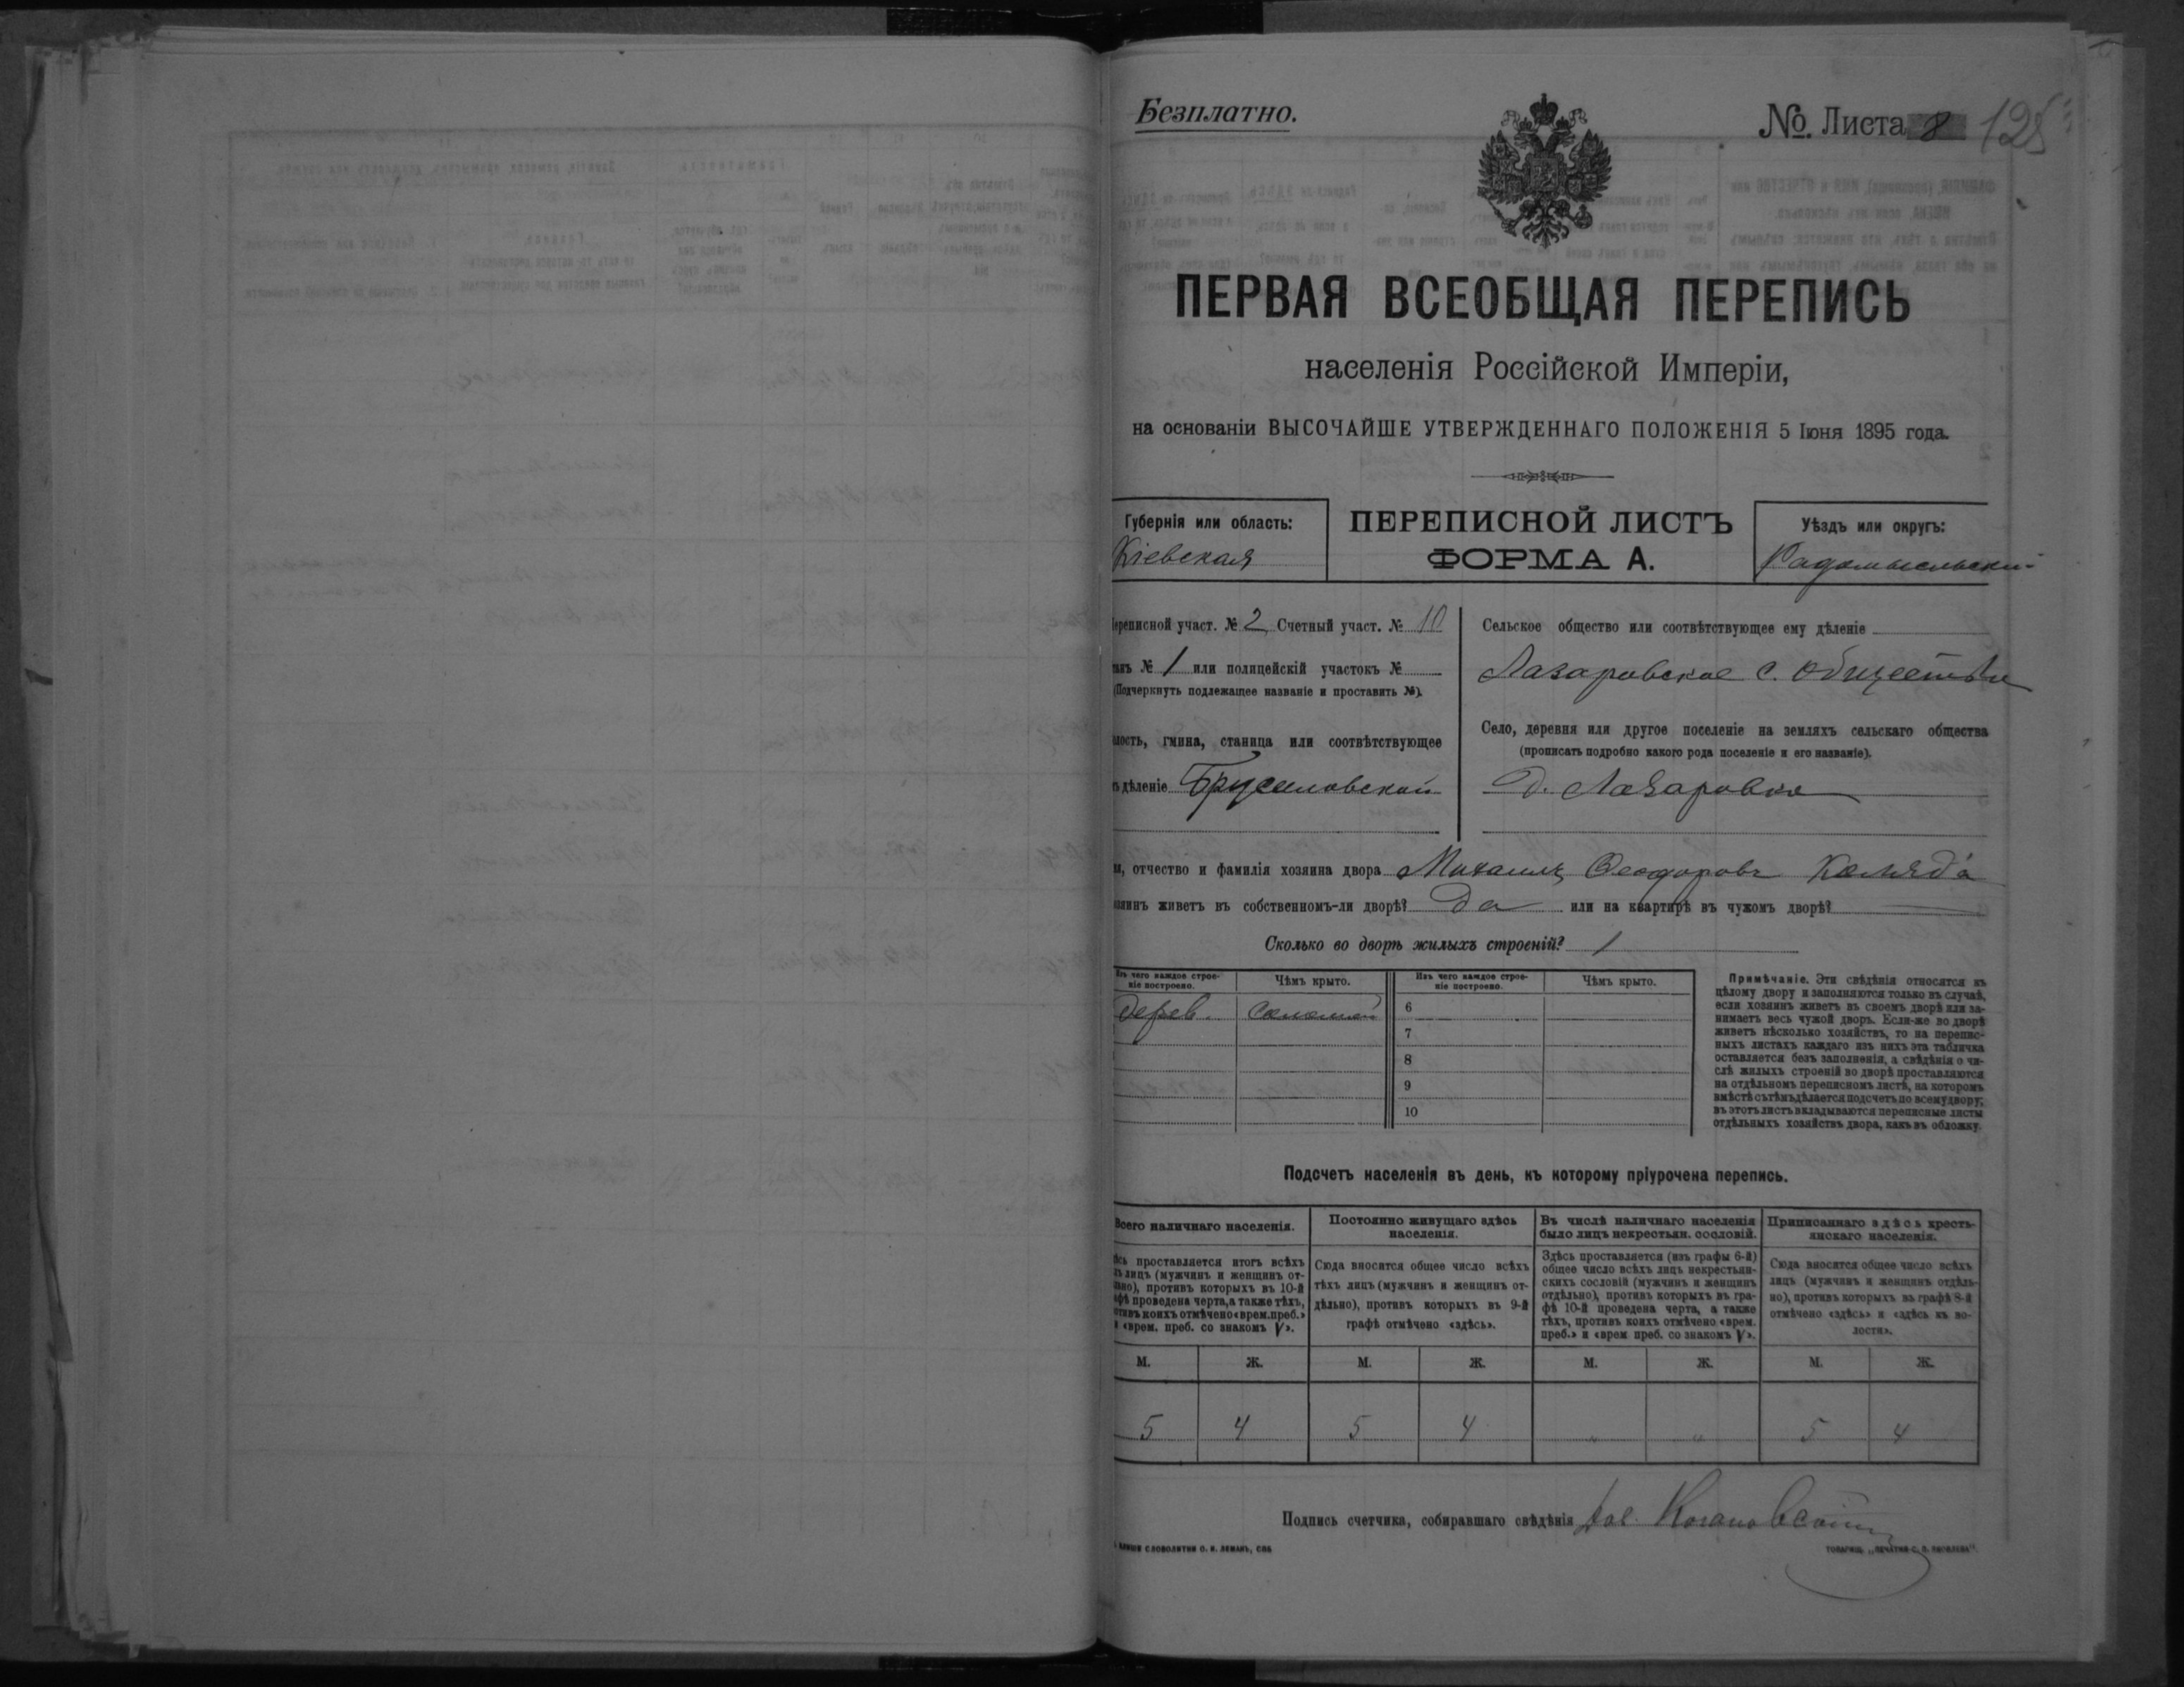 Безплатно.
№ Листа 8 125
ПЕРВАЯ ВСЕОБЩАЯ ПЕРЕПИСЬ
населенія Россійской Имперіи,
на основаніи ВЫСОЧАЙШЕ УТВЕРЖДЕННАГО ПОЛОЖЕНІЯ 5 Іюня 1895 года.
Губернія или область:
Кіевская
ПЕРЕПИСНОЙ ЛИСТЪ
ФОРМА А.
Уѣздъ или округъ:
Радомысльскій
Переписной участ. № 2 Счетный участ. № 10
танъ № 1 или полицейскій участокъ №
(Подчеркнуть подлежащее названіе и проставить №).
лость, гмина, станица или соотвѣтствующее
ъ дѣленіе Брусиловской
Сельское общество или соотвѣтствующее ему дѣленіе
Лазаровское с. общество
Село, деревня или другое поселеніе на земляхъ сельскаго общества
(прописать подробно какого рода поселеніе и его названіе).
Д. Лазаровка
я, отчество и фамилія хозяина двора Михаилъ Феодоровъ Коляда
зяинъ живетъ въ собственномъ-ли дворѣ? Да или на квартирѣ въ чужомъ дворѣ?
Сколько во дворѣ жилыхъ строеній? 1
Изъ чего каждое строе-
ніе построено.
Чѣмъ крыто.
Изъ чего каждое строе-
ніе построено.
Чѣмъ крыто.
дерев. соломой
6
7
8
9
10
Примѣчаніе. Эти свѣдѣнія относятся къ
цѣлому двору и заполняются только въ случаѣ,
если хозяинъ живетъ въ своемъ дворѣ или за-
нимаетъ весь чужой дворъ. Если-же во дворѣ
живетъ нѣсколько хозяйствъ, то на перепис-
ныхъ листахъ каждаго изъ нихъ эта табличка
оставляется безъ заполненія, а свѣдѣнія о чи-
слѣ жилыхъ строеній во дворѣ проставляются
на отдѣльномъ переписномъ листѣ, на которомъ
вмѣстѣ съ тѣмъ дѣлается подсчетъ по всему двору;
въ этотъ листъ вкладываются переписные листы
отдѣльныхъ хозяйствъ двора, какъ въ обложку.
Подсчетъ населенія въ день, къ которому пріурочена перепись.
Всего наличнаго населенія.
сь проставляется итогъ всѣхъ
ъ лицъ (мужчинъ и женщинъ от-
ьно), противъ которыхъ въ 10-й
фѣ проведена черта, а также тѣхъ,
тивъ коихъ отмѣчено «врем. преб.»
и «врем. преб. со знакомъ V».
Постоянно живущаго здѣсь
населенія.
Сюда вносится общее число всѣхъ
тѣхъ лицъ (мужчинъ и женщинъ от-
дѣльно), противъ которыхъ въ 9-й
графѣ отмѣчено «здѣсь».
Въ числѣ наличнаго населенія
было лицъ некрестьян. сословій.
Здѣсь проставляется (изъ графы 6-й)
общее число всѣхъ лицъ некрестьян-
скихъ сословій (мужчинъ и женщинъ
отдѣльно), противъ которыхъ въ гра-
фѣ 10-й проведена черта, а также
тѣхъ, противъ коихъ отмѣчено «врем.
преб.» и «врем преб. со знакомъ V».
Приписаннаго здѣсь кресть-
янскаго населенія.
Сюда вносится общее число всѣхъ
лицъ (мужчинъ и женщинъ отдѣль-
но), противъ которыхъ въ графѣ 8-й
отмѣчено «здѣсь» и «здѣсь къ во-
лости».
М. Ж. М. Ж. М. Ж. М. Ж.
5 4 5 4 " " 5 4
Подпись счетчика, собиравшаго свѣдѣнія
словолитни О. И. Леманъ, СПБ
Товарищ. „Печатня С. П. Яковлева".